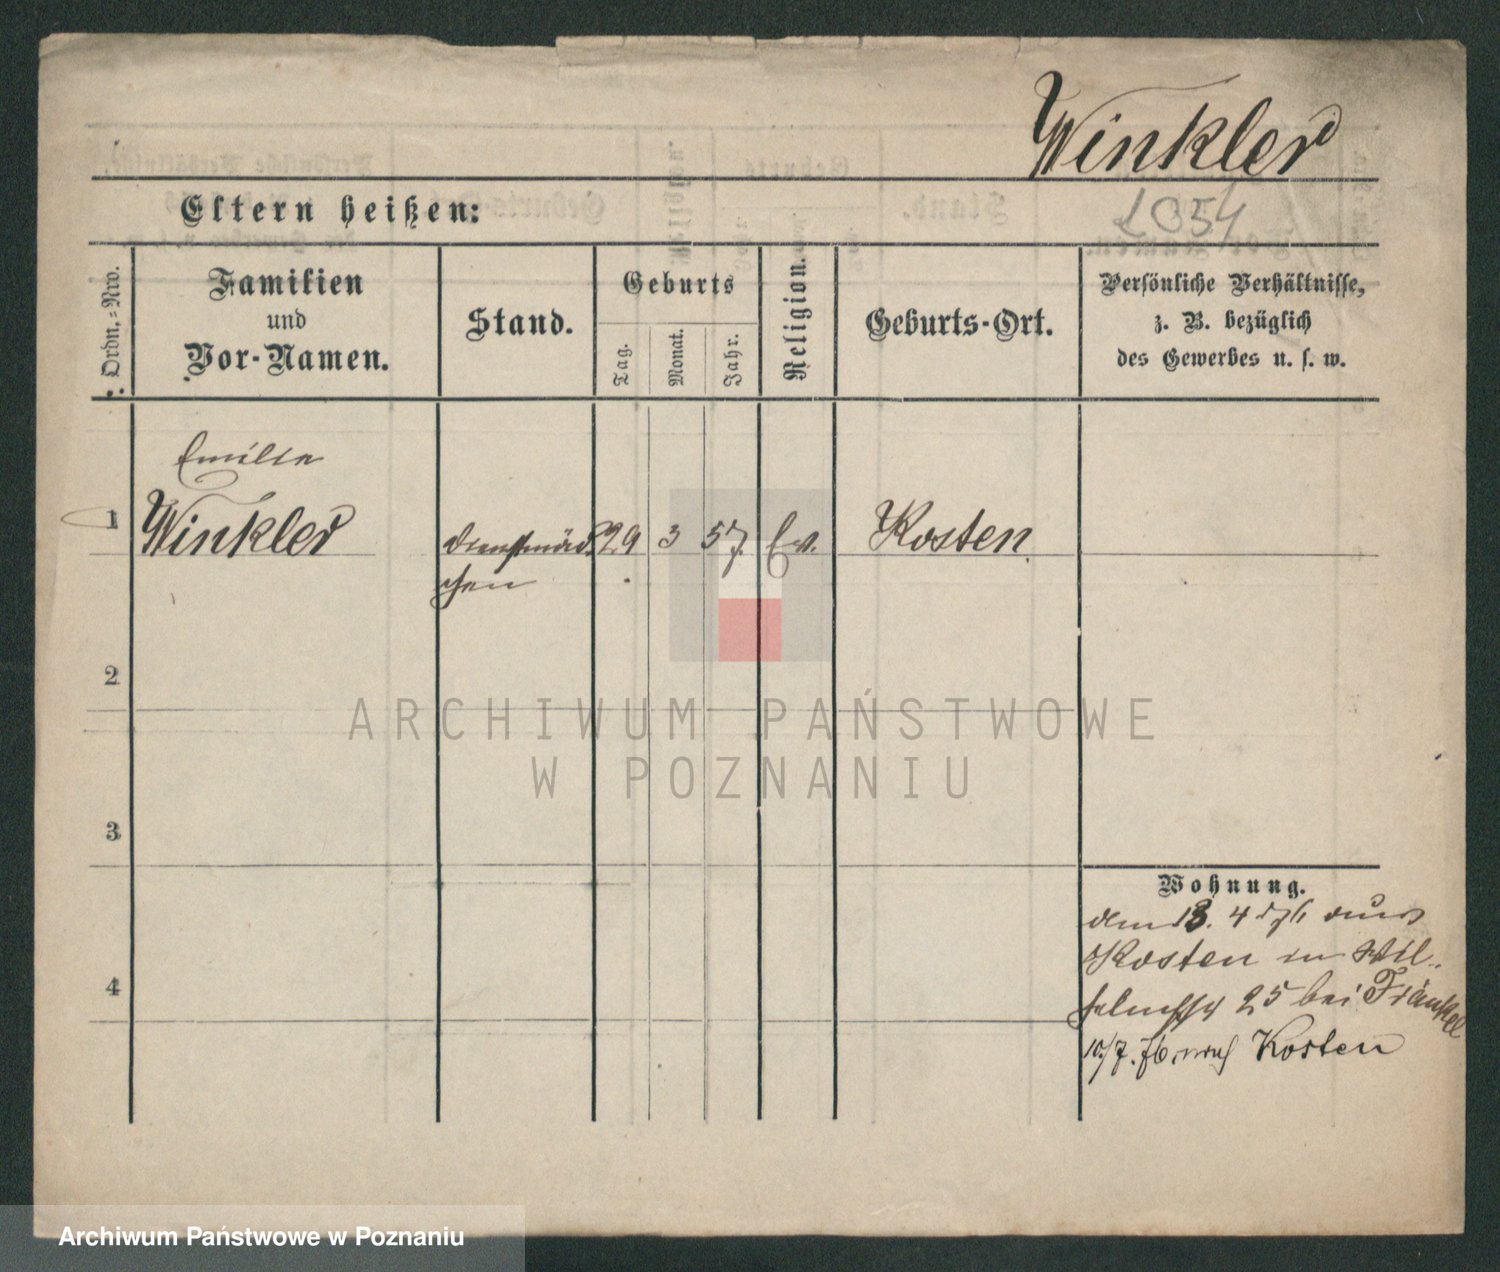 Winkler
Eltern heißen:
1054
Ordn.-Nro.
Familien
und
Vor-Namen.
Stand.
Geburts
Tag.
Monat.
Jahr.
Religion.
Geburts-Ort.
Persönliche Verhältnisse,
z. B. bezüglich
des Gewerbes u. s. w.
Emilie
1 Winkler Dienstmäd- 29 3 57. Ev. Kosten
chen
2
ARCHIWUM PAŃSTWOWE
W POZNANIU
3
Wohnung.
den 13. 4 76 aus
Kosten in Wil-
25 bei Fränkel
4
10/7. 76. nach Kosten
Archiwum Państwowe w Poznaniu